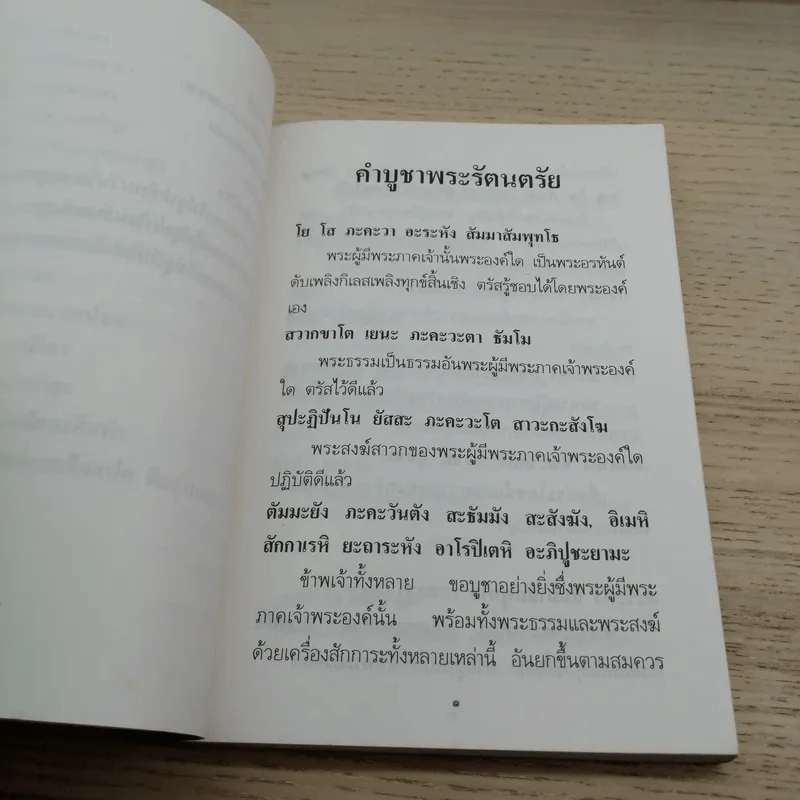 คำบูชาพระรัตนตรัย
โย โส ภะคะวา อะระหัง สัมมาสัมพุทโธ
พระผู้มีพระภาคเจ้านั้นพระองค์ใด เป็นพระอรหันต์
ดับเพลิงกิเลสเพลิงทุกข์สิ้นเชิง ตรัสรู้ชอบได้โดยพระองค์
เอง
สวากขาโต เยนะ ภะคะวะตา ธัมโม
พระธรรมเป็นธรรมอันพระผู้มีพระภาคเจ้าพระองค์
ใด ตรัสไว้ดีแล้ว
สุปะฏิปันโน ยัสสะ ภะคะวะโต สาวะกะสังโฆ
พระสงฆ์สาวกของพระผู้มีพระภาคเจ้าพระองค์ใด
ปฏิบัติดีแล้ว
ตัมมะยัง ภะคะวันตัง สะธัมมัง สะสังฆัง, อิเมหิ
สักกาเรหิ ยะถาระหัง อาโรปิเตหิ อะภิปูชะยามะ
ข้าพเจ้าทั้งหลาย ขอบูชาอย่างยิ่งซึ่งพระผู้มีพระ
ภาคเจ้าพระองค์นั้น พร้อมทั้งพระธรรมและพระสงฆ์
ด้วยเครื่องสักการะทั้งหลายเหล่านี้ อันยกขึ้นตามสมควร
๑